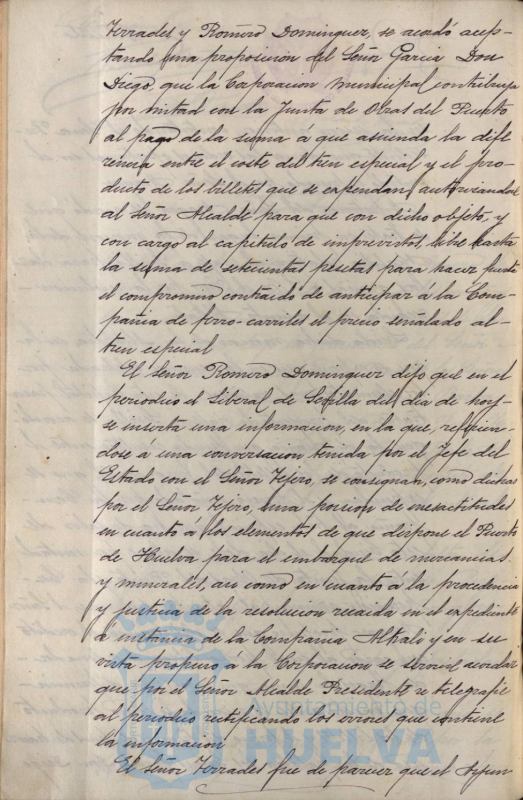 Terrades y Romero Dominguez, se acordó acep-
tando una proposicion del Señor Garcia Don
Diego, que la Corporacion Municipal contribuya
por mitad con la Junta de Obras del Puerto
al pago de la suma á que ascienda la dife
rencia entre el coste del tren especial y el pro-
ducto de los billetes que se expendan, autorizandose
al Señor Alcalde para que con dicho objeto, y
con cargo al capitulo de imprevistos, libre hasta
la suma de setecientas pesetas para hacer frente
el compromiso contraido de anticipar á la Com-
pañia de ferro-carriles el precio señalado al
tren especial
El Señor Romero Dominguez dijo que en el
periodico el Liberal de Sevilla del dia de hoy
se inserta una informacion, en la que, refirien-
dose á una conversacion tenida por el Jefe del
Estado con el Señor Tejero, se consignan, como dichas
por el Señor Tejero, una porcion de inexactitudes
en cuanto á los elementos de que dispone el Puerto
de Huelva para el embarque de mercancias
y minerales, asi como en cuanto á la procedencia
y justicia de la resolucion recaida en el expediente
á instancia de la Compañia Alkali y en su
vista propuso á la Corporacion se sirviese acordar
que por el Señor Alcalde Presidente se telegrafie
al periodico rectificando los errores que contiene
la informacion
El Señor Terrades fue de parecer que el Ayun
Ayuntamiento de
HUELVA